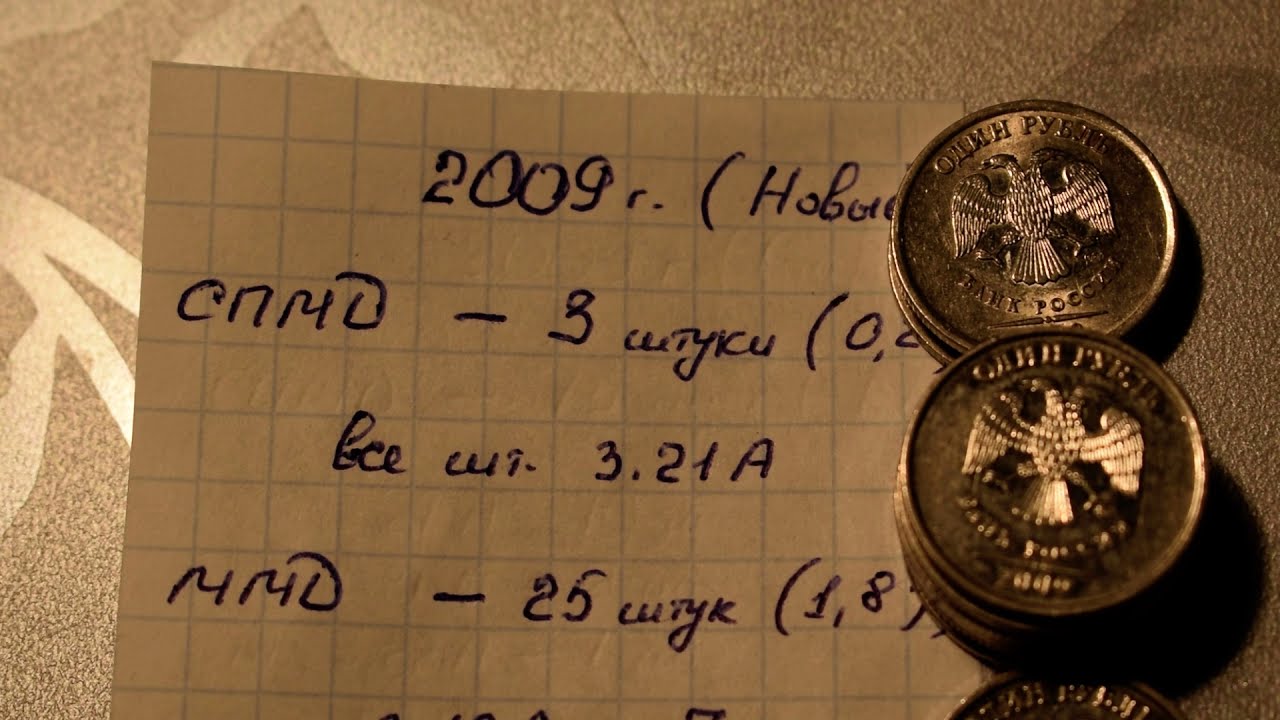 2009 г. (Новые
СПМД - 3 штуки (0,2
все шт. 3.21А
ММД - 25 штук (1,8
ОДИН РУБЛЬ
БАНК РОССИИ
ОДИН РУБЛЬ
БАНК РОССИИ
ОДИН РУБЛЬ